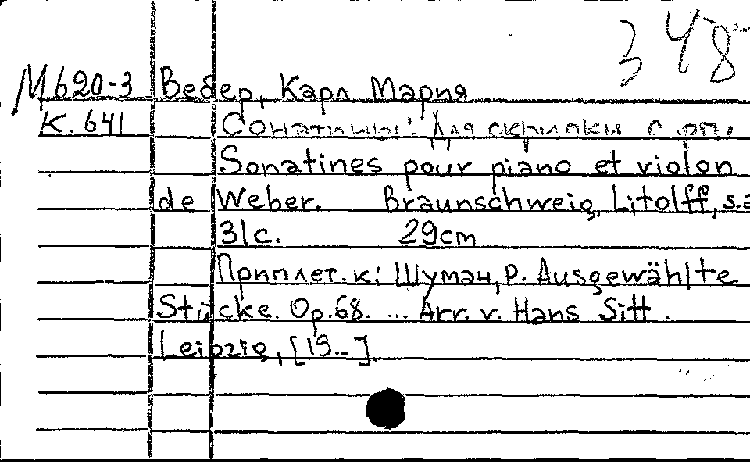 348
М620-3 Вебер, Карл Мария
К. 641 Сонатины: для скрипки с фп.
Sonatines pour piano et violon
de Weber. Braunschweig, Litolff, s.a
31с. 29cm
Приплет. к: Шуман, Р. Ausgewählte
Stücke. Op.68. ... Arr. v. Hans Sitt.
Leipzig, [19..]